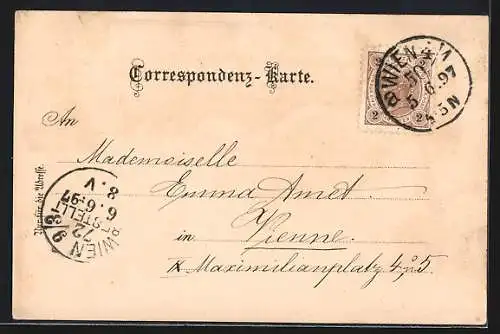 Correspondenz-Karte.
WIEN 4/1
50
5.6.97
4-5 N
2 2
An
Mademoiselle
Emma Amet
in Vienne.
Maximilianplatz 4 o 5
Nur für die Adresse.
WIEN 9/3
72
BESTELLT
6.6.97
8.V